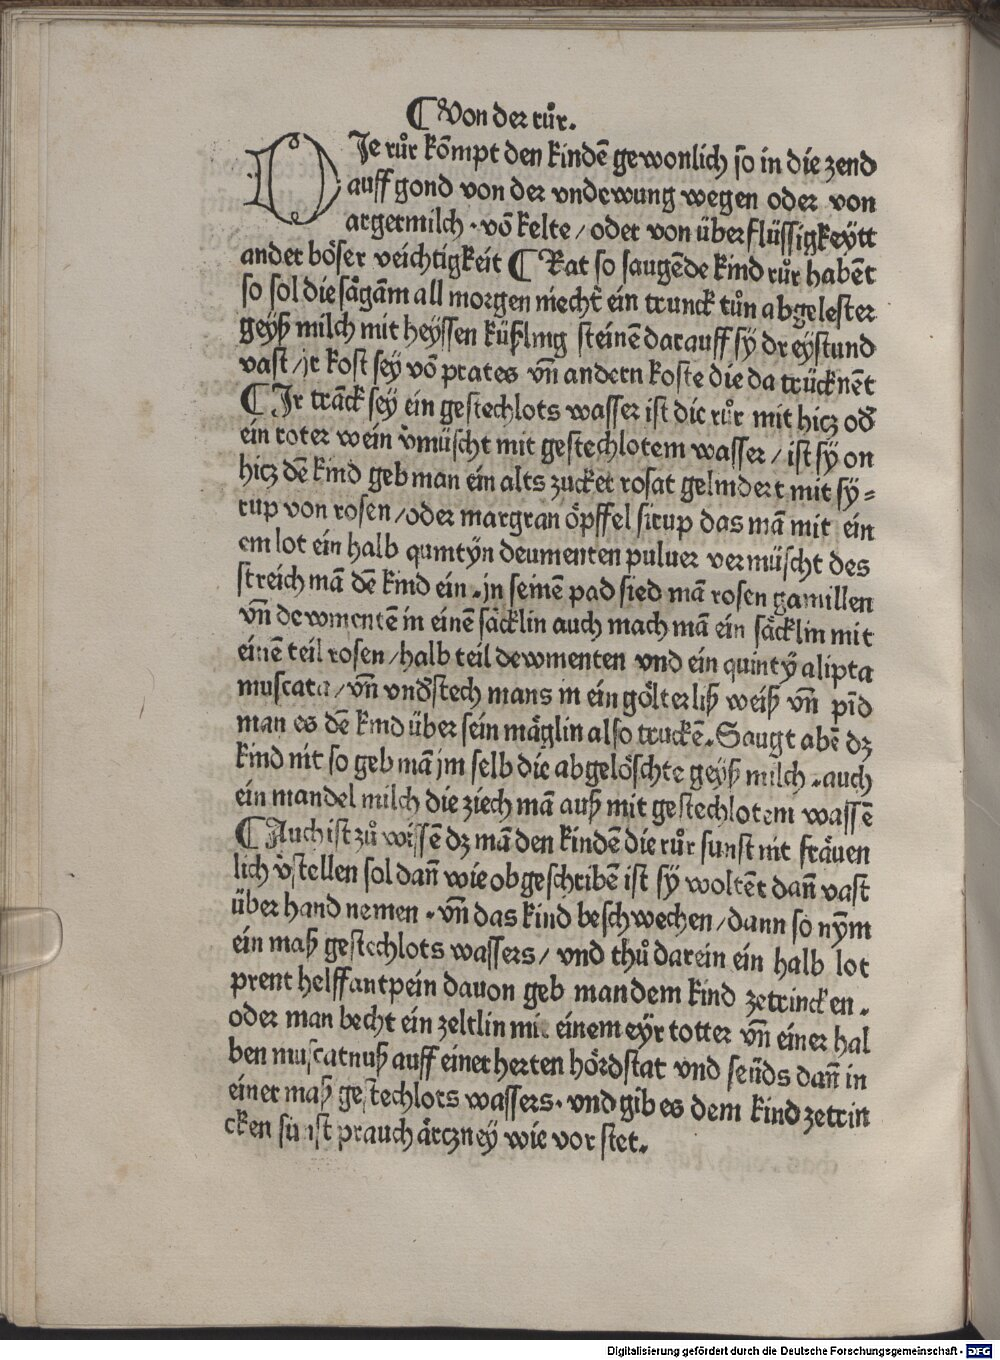 ¶ Von der růr.
DJe růr kompt den kindē gewonlich so in die zend
auff gond von der vndewung wegen oder von
argermilch · vō kelte / oder von überflüssigkeÿtt
ander böser veichtigkeit ¶ Rat so saugēde kind růr habēt
so sol die sägām all morgen niechtˀ ein trunck tůn abgelester
geÿß milch mit heÿssen küßling steinē darauff sÿ dreÿstund
vast / jr kost seÿ vō prates vn̄ andern koste die da trücknēt
¶ Jr trāck seÿ ein gestechlots wasser ist die růr mit hicz od̄
ein roter wein v̓müscht mit gestechlotem wasser / ist sÿ on
hicz dē kind geb man ein alts zucker rosat gelindert mit sÿ=
rup von rosen / oder margran öpffel sirup das mā mit ein
em lot ein halb quintÿn deumenten puluer vermüscht des
streich mā dē kind ein · jn seinē pad sied mā rosen gamillen
vn̄ dewmentē in einē säcklin auch mach mā ein säcklin mit
einē teil rosen / halb teil dewmenten vnd ein quintÿ alipta
muscata / vn̄ vnd̄stech mans in ein gölterliß weiß vn̄ pīd
man es dē kind über sein mäglin also truckē. Saugt abē dz
kind nit so geb mā jm selb die abgelöschte geÿß milch · auch
ein mandel milch die ziech mā auß mit gestechlotem wassē
¶ Auch ist zů wissē dz mā den kindē die růr sunst nit fräuen
lich v̓stellen sol dan̄ wie obgeschribē ist sÿ woltēt dan̄ vast
über hand nemen · vn̄ das kind beschwechen / dann so nÿm
ein maß gestechlots wassers / vnd thů darein ein halb lot
prent helffantpein dauon geb man dem kind zetrincken ·
oder man becht ein zeltlin mit einem eÿrtotter vn̄ einer hal
ben muscatnuß auff einer herten hördstat vnd seūds dan̄ in
einer maß gestechlots wassers · vnd gib es dem kind zetrin
cken sunst prauch ärczneÿ wie vor stet.
Digitalisierung gefördert durch die Deutsche Forschungsgemeinschaft - DFG